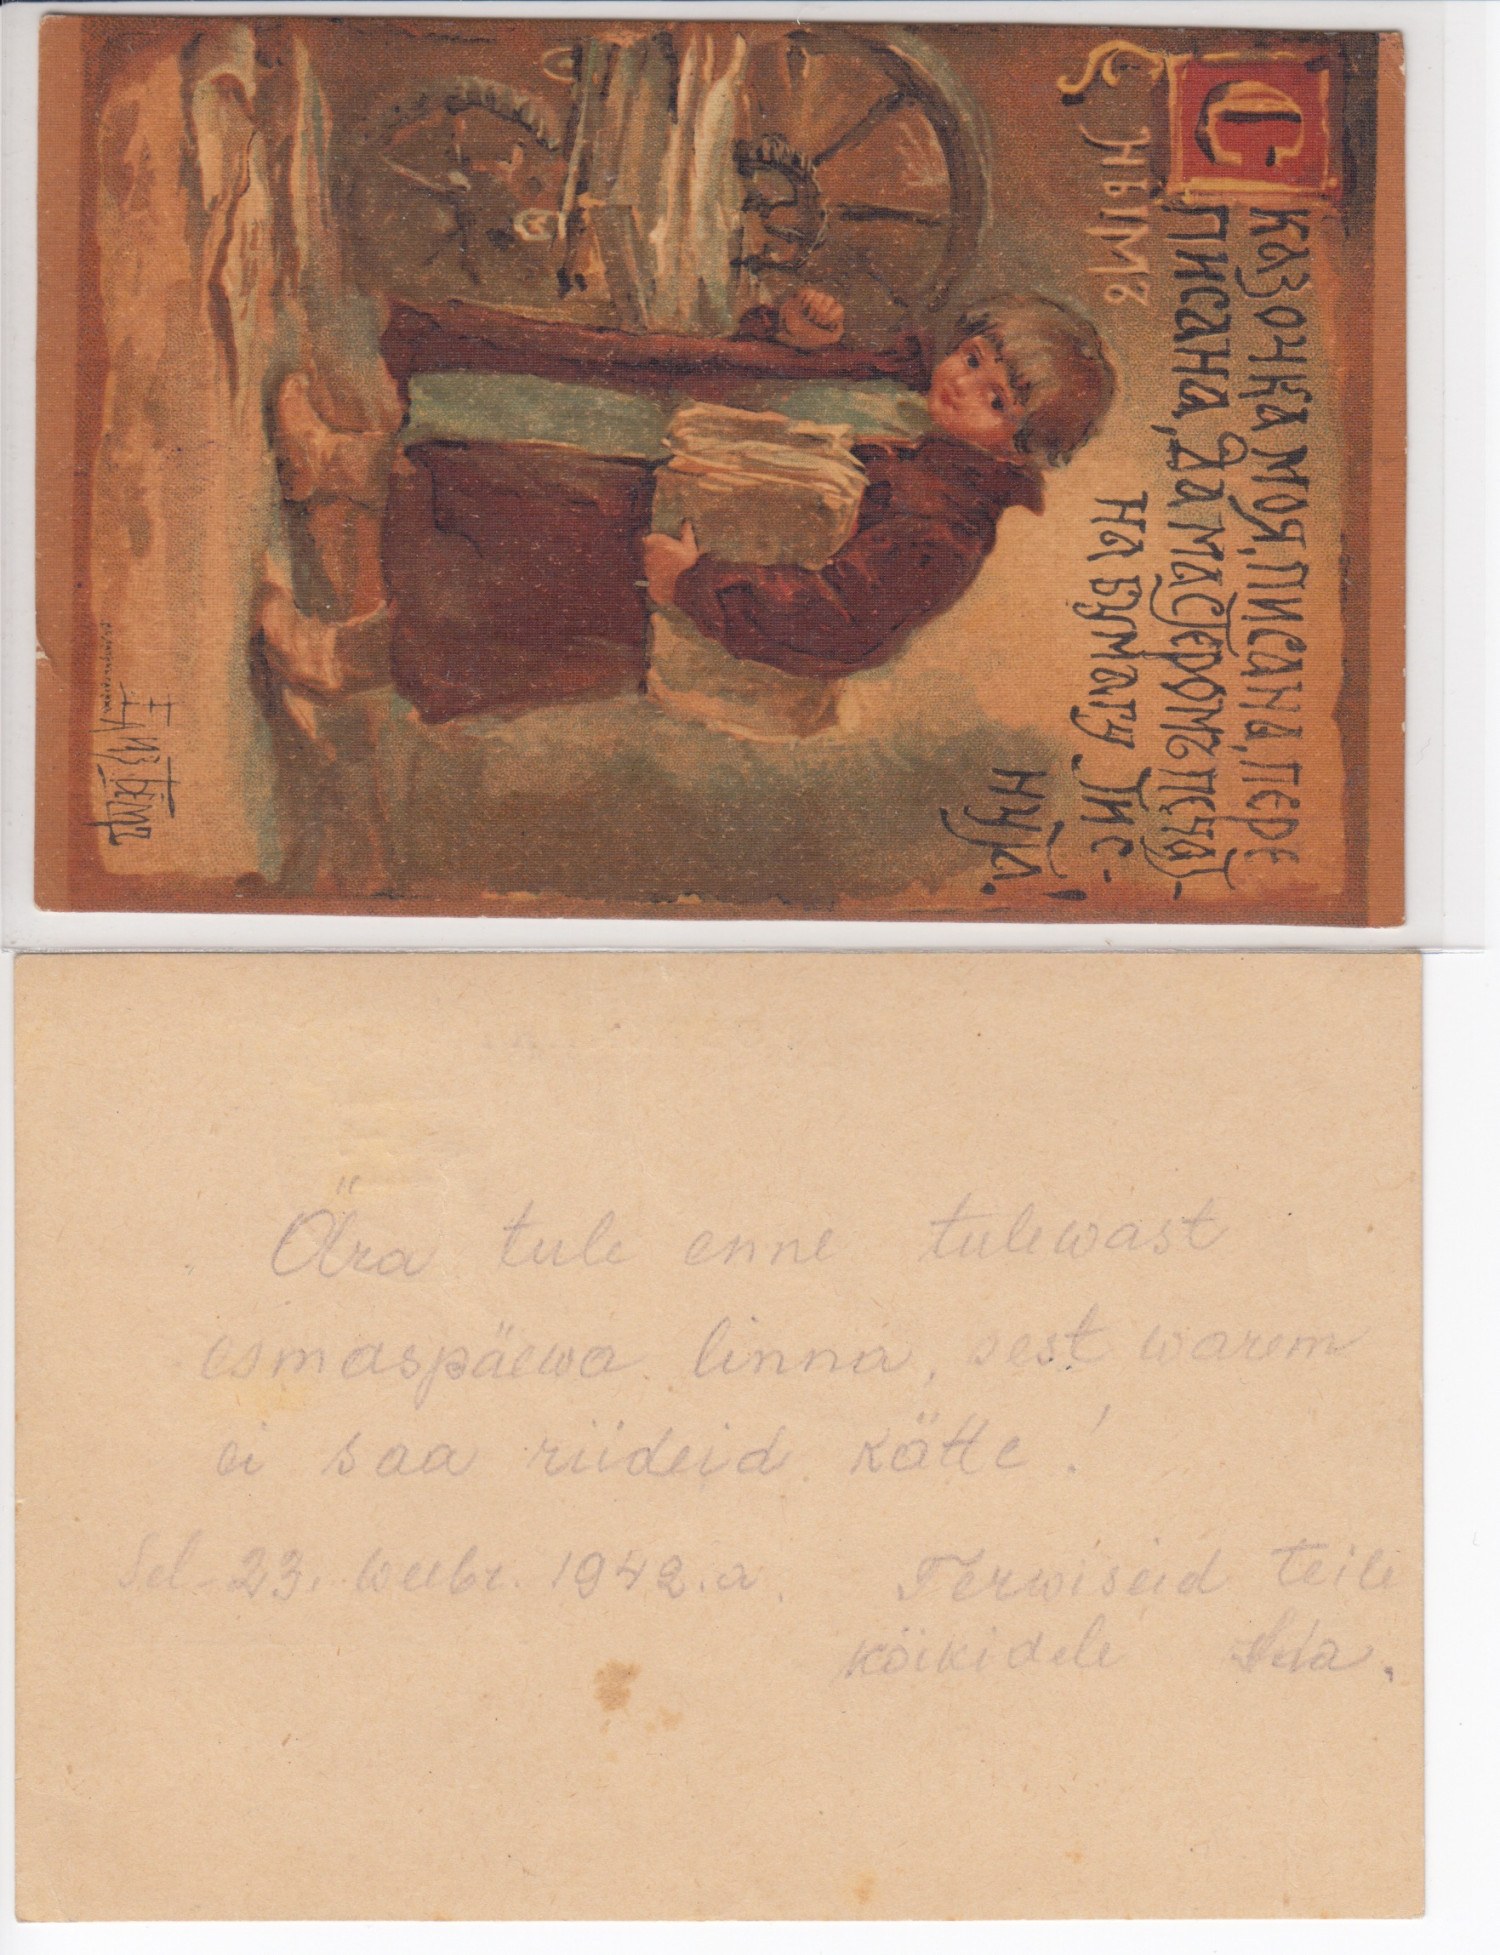 Сказочка моя, писана, пере
писана, да мастеромъ печат-
нымъ
на бумагу тис-
нута!
Елиз Бёмъ
Ära tule enne tulewast
esmaspäewa linna, sest warem
ei saa riideid kätte!
Sel. 23. weebr. 1942.a. Terwiseid teile
kõikidele